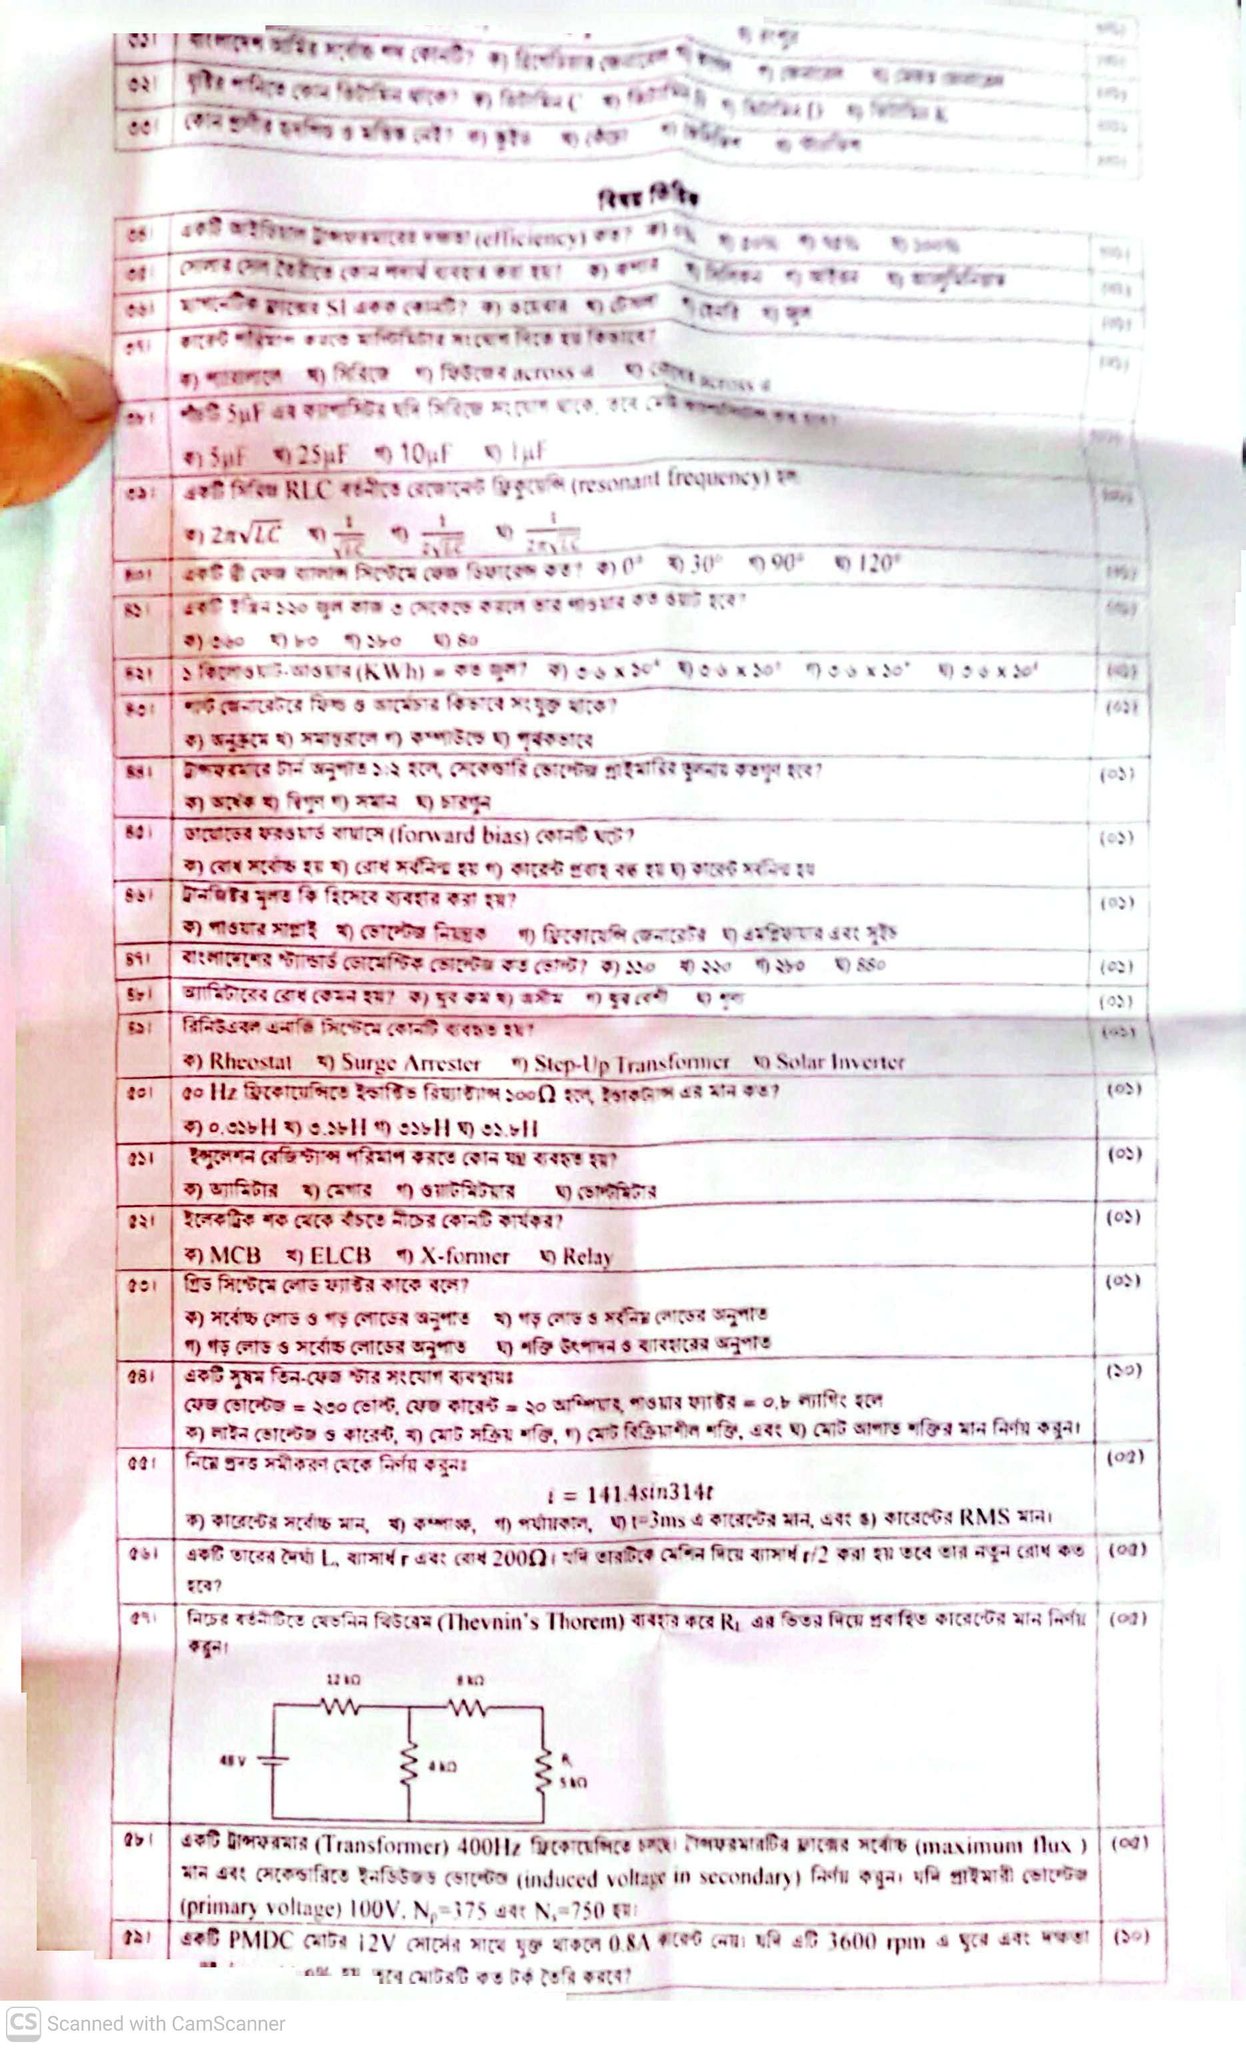 ৩১। বাংলাদেশ আর্মির সর্বোচ্চ পদ কোনটি? ক) ব্রিগেডিয়ার জেনারেল গ) জেনারেল ঘ) মেজর জেনারেল
৩২। বৃষ্টির পানিতে কোন ভিটামিন থাকে? ক) ভিটামিন C খ) ভিটামিন B গ) ভিটামিন D ঘ) ভিটামিন K
৩৩। কোন প্রাণীর হৃদপিন্ড ও মস্তিষ্ক নেই? ক) স্কুইড খ) কেঁচো
বিষয় ভিত্তিক
৩৪। একটি আইডিয়াল ট্রান্সফরমারের দক্ষতা (efficiency) কত? ক) ০% খ) ৫০% গ) ৭৫% ঘ) ১০০%
৩৫। সোলার সেল তৈরীতে কোন পদার্থ ব্যবহার করা হয়? ক) কপার খ) সিলিকন গ) আইরন ঘ) অ্যালুমিনিয়াম
৩৬। ম্যাগনেটিক ফ্লাক্সের SI একক কোনটি? ক) ওয়েবার খ) টেসলা গ) হেনরি ঘ) জুল
৩৭। কারেন্ট পরিমাপ করতে মাল্টিমিটার সংযোগ দিতে হয় কিভাবে?
ক) প্যারালালে খ) সিরিজে গ) ফিউজের across এ ঘ) লোডের across এ
৩৮। পাঁচটি 5μF এর ক্যাপাসিটর যদি সিরিজে সংযোগ থাকে, তবে মোট ক্যাপাসিটেন্স কত হবে?
ক) 5μF খ) 25μF গ) 10μF ঘ) 1μF
৩৯। একটি সিরিজ RLC বর্তনীতে রেজোনেন্ট ফ্রিকুয়েন্সি (resonant frequency) হল:
ক) 2π√LC খ) 1/√LC গ) 1/2√LC ঘ) 1/2π√LC
৪০। একটি থ্রী ফেজ ব্যালান্স সিস্টেমে ফেজ ডিফারেন্স কত? ক) 0° খ) 30° গ) 90° ঘ) 120°
৪১। একটি ইঞ্জিন ১২০ জুল কাজ ৩ সেকেন্ডে করলে তার পাওয়ার কত ওয়াট হবে?
ক) ৩৬০ খ) ৮০ গ) ১৮০ ঘ) ৪০
৪২। ১ কিলোওয়াট-আওয়ার (KWh) = কত জুল? ক) ৩.৬ x ১০ খ) ৩.৬ x ১০ গ) ৩.৬ x ১০ ঘ) ৩.৬ x ১০
৪৩। শান্ট জেনারেটরে ফিল্ড ও আর্মেচার কিভাবে সংযুক্ত থাকে? (০১)
ক) অনুক্রমে খ) সমান্তরালে গ) কম্পাউন্ডে ঘ) পৃথকভাবে
৪৪। ট্রান্সফরমারে টার্ন অনুপাত ১:২ হলে, সেকেন্ডারি ভোল্টেজ প্রাইমারির তুলনায় কতগুণ হবে? (০১)
ক) অর্ধেক খ) দ্বিগুণ গ) সমান ঘ) চারগুন
৪৫। ডায়োডের ফরওয়ার্ড বায়াসে (forward bias) কোনটি ঘটে? (০১)
ক) রোধ সর্বোচ্চ হয় খ) রোধ সর্বনিম্ন হয় গ) কারেন্ট প্রবাহ বন্ধ হয় ঘ) কারেন্ট সর্বনিম্ন হয়
৪৬। ট্রানজিস্টর মূলত কি হিসেবে ব্যবহার করা হয়? (০১)
ক) পাওয়ার সাপ্লাই খ) ভোল্টেজ নিয়ন্ত্রক গ) ফ্রিকোয়েন্সি জেনারেটর ঘ) এমপ্লিফায়ার এবং সুইচ
৪৭। বাংলাদেশের স্ট্যান্ডার্ড ডোমেস্টিক ভোল্টেজ কত ভোল্ট? ক) ১১০ খ) ২২০ গ) ২৮০ ঘ) ৪৪০ (০১)
৪৮। অ্যামিটারের রোধ কেমন হয়? ক) খুব কম খ) অসীম গ) খুব বেশী ঘ) শূণ্য (০১)
৪৯। রিনিউএবল এনার্জি সিস্টেমে কোনটি ব্যবহৃত হয়? (০১)
ক) Rheostat খ) Surge Arrester গ) Step-Up Transformer ঘ) Solar Inverter
৫০। ৫০ Hz ফ্রিকোয়েন্সিতে ইন্ডাক্টিভ রিয়্যাক্ট্যান্স ১০০Ω হলে, ইন্ডাকট্যান্স এর মান কত? (০১)
ক) ০.৩১৮H খ) ৩.১৮H গ) ৩১৮H ঘ) ৩১.৮H
৫১। ইন্সুলেশন রেজিস্ট্যান্স পরিমাপ করতে কোন যন্ত্র ব্যবহৃত হয়? (০১)
ক) অ্যামিটার খ) মেগার গ) ওয়াটমিটয়ার ঘ) ভোল্টমিটার
৫২। ইলেকট্রিক শক থেকে বাঁচতে নীচের কোনটি কার্যকর? (০১)
ক) MCB খ) ELCB গ) X-former ঘ) Relay
৫৩। গ্রিড সিস্টেমে লোড ফ্যাক্টর কাকে বলে? (০১)
ক) সর্বোচ্চ লোড ও গড় লোডের অনুপাত খ) গড় লোড ও সর্বনিম্ন লোডের অনুপাত
গ) গড় লোড ও সর্বোচ্চ লোডের অনুপাত ঘ) শক্তি উৎপাদন ও ব্যাবহারের অনুপাত
৫৪। একটি সুষম তিন-ফেজ স্টার সংযোগ ব্যবস্থায়ঃ (১০)
ফেজ ভোল্টেজ = ২৩০ ভোল্ট, ফেজ কারেন্ট = ২০ অ্যাম্পিয়ার, পাওয়ার ফ্যাক্টর = ০.৮ ল্যাগিং হলে
ক) লাইন ভোল্টেজ ও কারেন্ট, খ) মোট সক্রিয় শক্তি, গ) মোট বিক্রিয়াশীল শক্তি, এবং ঘ) মোট আপাত শক্তির মান নির্ণয় করুন।
৫৫। নিম্নে প্রদত্ত সমীকরণ থেকে নির্ণয় করুনঃ (০৫)
i = 141.4sin314t
ক) কারেন্টের সর্বোচ্চ মান, খ) কম্পাঙ্ক, গ) পর্যায়কাল, ঘ) t=3ms এ কারেন্টের মান, এবং ঙ) কারেন্টের RMS মান।
৫৬। একটি তারের দৈর্ঘ্য L, ব্যাসার্ধ r এবং রোধ 200Ω। যদি তারটিকে মেশিন দিয়ে ব্যাসার্ধ r/2 করা হয় তবে তার নতুন রোধ কত (০৫)
হবে?
৫৭। নিচের বর্তনীটিতে থেভনিন থিউরেম (Thevnin's Thorem) ব্যবহার করে R<sub>L</sub> এর ভিতর দিয়ে প্রবাহিত কারেন্টের মান নির্ণয় (০৫)
করুন।
12 kΩ 8 kΩ
48 V 4 kΩ R
5 kΩ
৫৮। একটি ট্রান্সফরমার (Transformer) 400Hz ফ্রিকোয়েন্সিতে চলছে। ট্রান্সফরমারটির ফ্লাক্সের সর্বোচ্চ (maximum flux ) (০৫)
মান এবং সেকেন্ডারিতে ইনডিউজড ভোল্টেজ (induced voltage in secondary) নির্ণয় করুন। যদি প্রাইমারী ভোল্টেজ
(primary voltage) 100V, N<sub>p</sub>=375 এবং N<sub>s</sub>=750 হয়।
৫৯। একটি PMDC মোটর 12V সোর্সের সাথে যুক্ত থাকলে 0.8A কারেন্ট নেয়। যদি এটি 3600 rpm এ ঘুরে এবং দক্ষতা (১০)
হয় তবে মোটরটি কত টর্ক তৈরি করবে?
CS Scanned with CamScanner